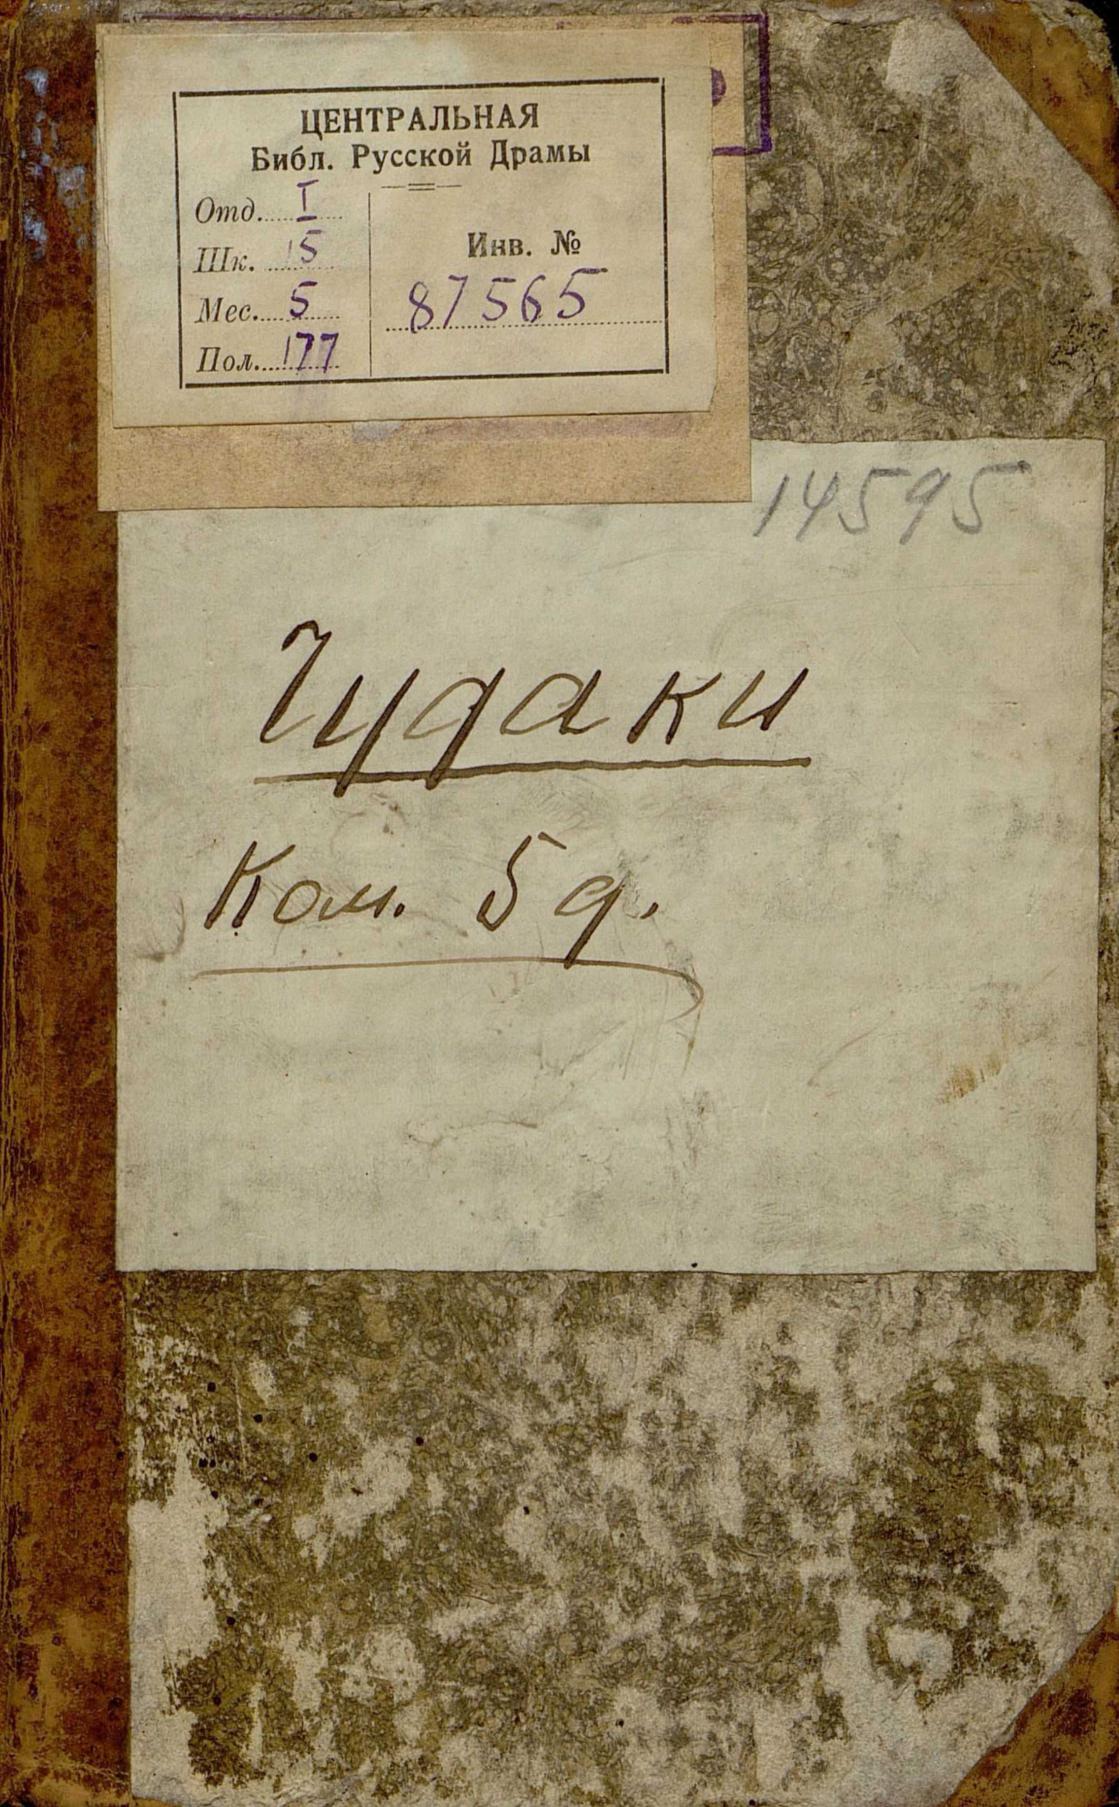 ЦЕНТРАЛЬНАЯ
Библ. Русской Драмы
Отд. I
Шк. 15
Мес. 5
Пол. 177
Инв. №
87565
14595
Чудаки
Ком. 5 д.